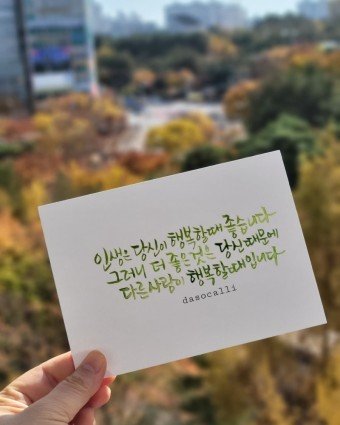 인생은 당신이 행복할때 좋습니다
그러나 더 좋은것은 당신때문에
다른사람이 행복할때입니다
dasocalli